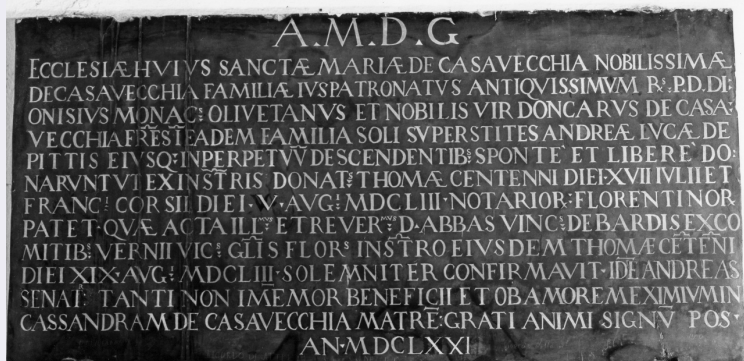 A.M.D.G
ECCLESIÆ HVIVS SANCTÆ MARIÆ DE CASAVECCHIA NOBILISSIMÆ
DECASAVECCHIA FAMILIÆ IVSPATRONATVS ANTIQVISSIMVM Rˢ. P.D.DI
ONISIVS MONAC: OLIVETANVS ET NOBILIS VIR DONCARVS DE CASA
VECCHIA FRĒS Ē EADEM FAMILIA SOLI SVPERSTITES ANDREÆ LVCÆ DE
PITTIS EIVSQ: INPERPETVV̄ DESCENDENTIBˢ: SPONTE ET LIBERE DO
NARVNT VT EX INSTR̄IS DONATˢ: THOMÆ CENTENNI DIEI·XVII IVLII ET
FRANCˡ: CORSII DIEI·W·AVGˡ: MDCLIII·NOTARIOR: FLORENTINOR
PATET·QVÆ ACTA ILLᵐᵛˢ: ET REVERᵐᵛˢ: D·ABBAS VINCˢ: DEBARDIS EX CO
MITIBˢ: VERNII VIC: GL̄IS FLORˢ INST̄RO EIVSDEM THOMÆ CĒTĒNI
DIEI XIX·AVGˡ: MDCLIII·SOLEMNITER CONFIRMAVIT·IDĒ ANDREAS
SENATᴿ: TANTI NON IMEMOR BENEFICII ET OB AMOREM EXIMIVM IN
CASSANDRAM DE CASAVECCHIA MATRĒ: GRATI ANIMI SIGNV̄ POS·
AN·MDCLXXI